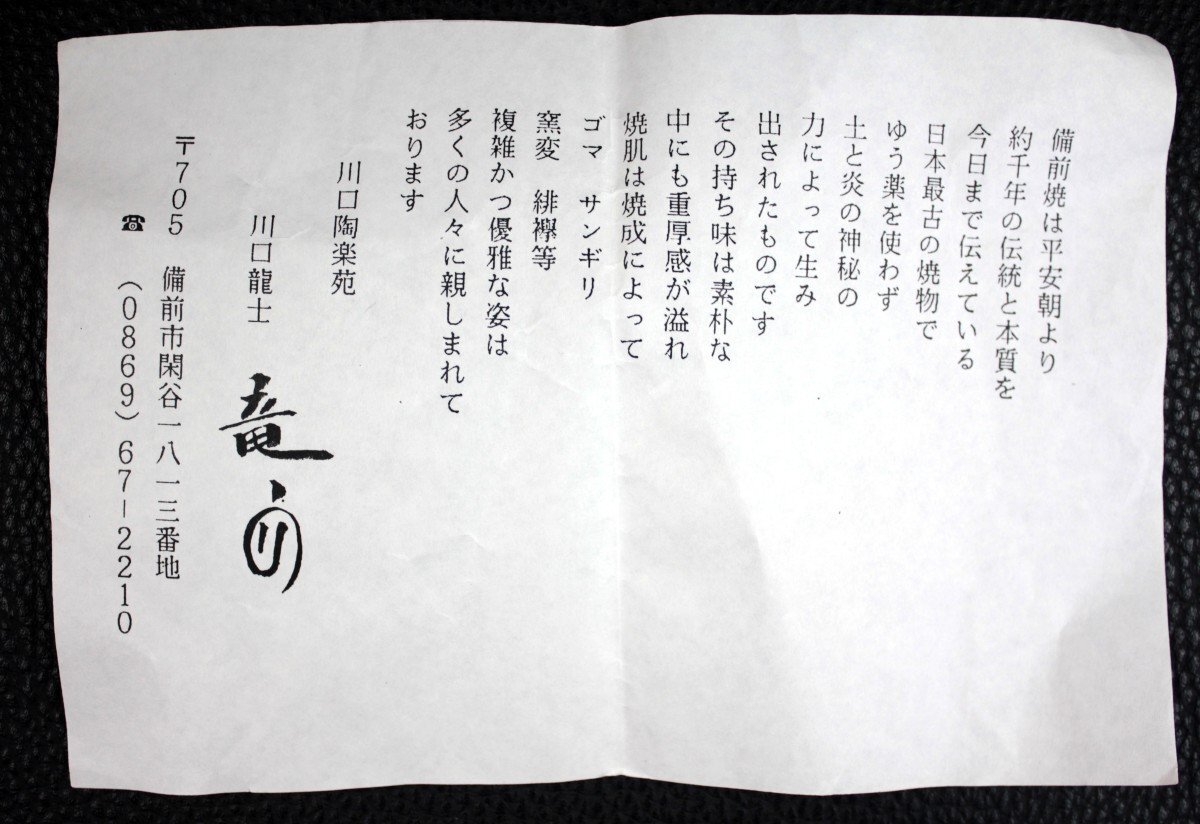 備前焼は平安朝より
約千年の伝統と本質を
今日まで伝えている
日本最古の焼物で
ゆう薬を使わず
土と炎の神秘の
力によって生み
出されたものです
その持ち味は素朴な
中にも重厚感が溢れ
焼肌は焼成によって
ゴマ サンギリ
窯変 緋襷等
複雑かつ優雅な姿は
多くの人々に親しまれて
おります
川口陶楽苑
川口龍士 竜
〒705 備前市閑谷一八一三番地
☎ (0869) 67-2210